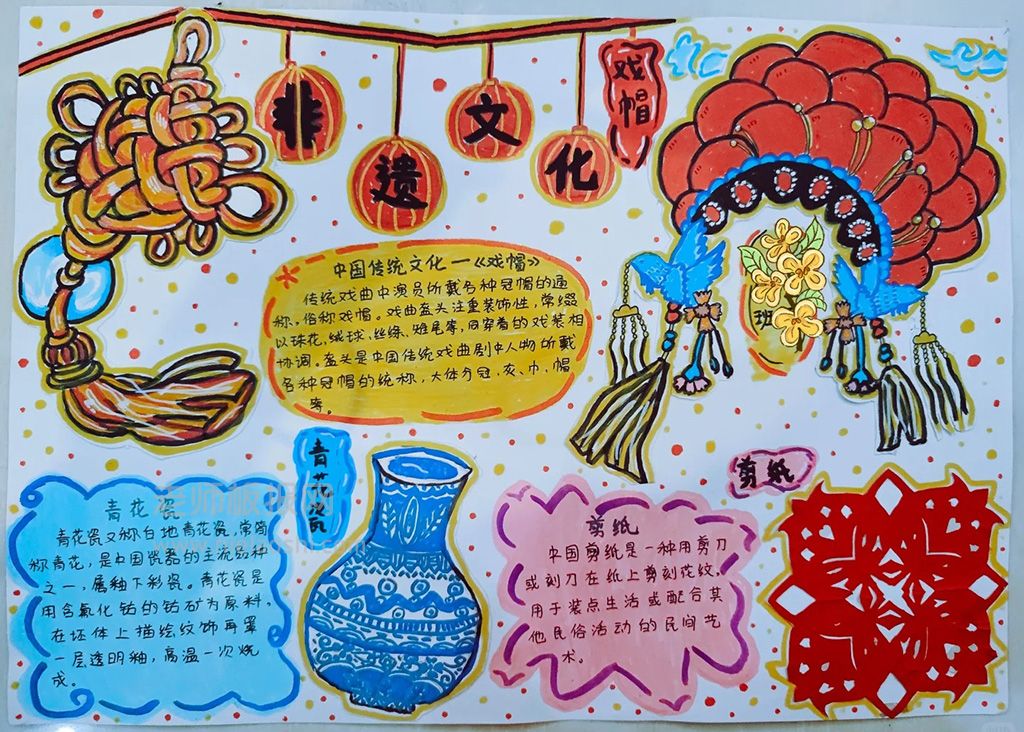 非
遗
文
化
戏
帽
中国传统文化一《戏帽》
传统戏曲中演员所戴各种冠帽的通
称,俗称戏帽。戏曲盔头注重装饰性,常缀
以珠花,绒球,丝绦,雉尾等,同穿着的戏装相
协调。盔头是中国传统戏曲剧中人物所戴
各种冠帽的统称,大体分冠、灰、巾、帽
等。
班
青花瓷
青花瓷
青花瓷又称白地青花瓷,常简
称青花,是中国瓷器的主流品种
之一,属釉下彩瓷。青花瓷是
用含氧化钴的钴矿为原料,
在坯体上描绘纹饰再罩
一层透明釉,高温一次烧
成。
剪纸
剪纸
中国剪纸是一种用剪刀
或刻刀在纸上剪刻花纹,
用于装点生活或配合其
他民俗活动的民间艺
术。
老师板报网